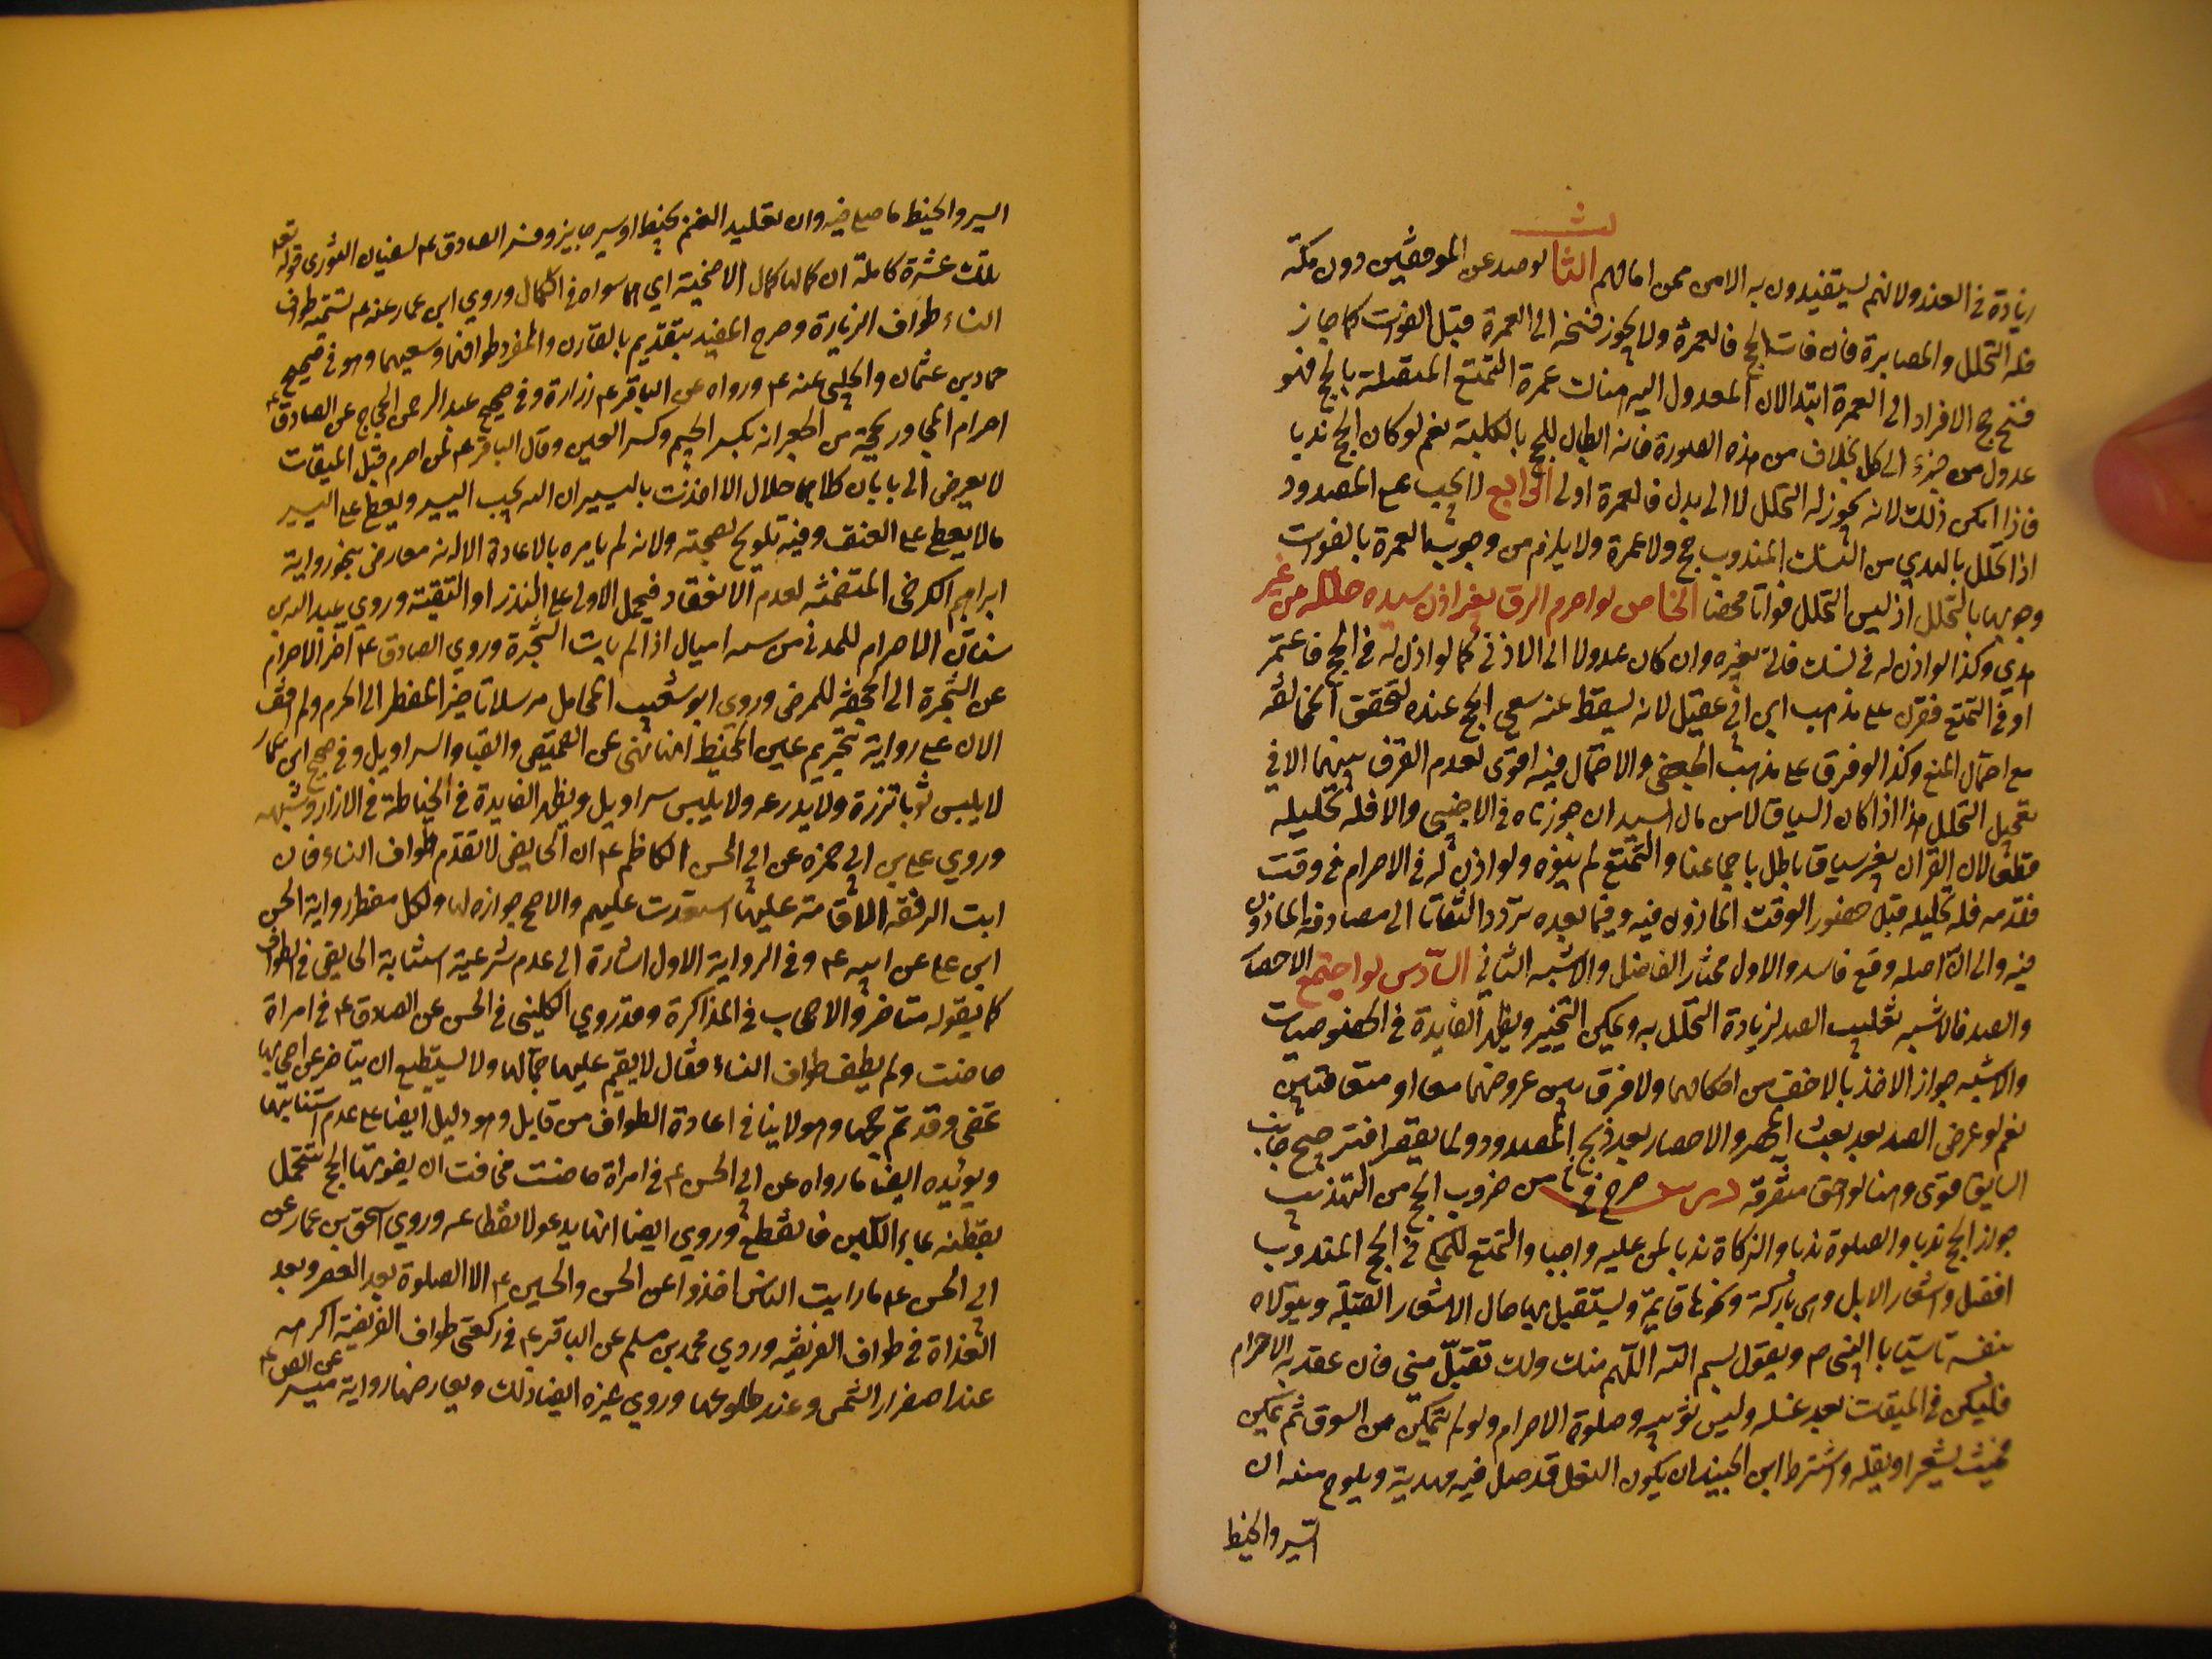 زيادة في العذر ولانهم لا يستفيدون به الامن ممن امامهم الثالث لو صد عن الموقفين دون مكة
فله التحلل والمصابرة فان فات الحج فالعمرة ولا يجوز فسخه الى العمرة قبل الفوات كما جاز
فسخ حج الافراد الى العمرة ابتدا لان المعدول اليه هناك عمرة التمتع المتصلة بالحج فهو
عدول من جزء الى كل بخلاف من هذه الصورة فانه ابطال للحج بالكلية نعم لو كان الحج ندبا
فاذا امكن ذلك لانه يجوز له التحلل لا الى بدل فالعمرة اولى الرابع لا يجب على المصدود
اذا تحلل بالهدي من النسك المندوب حج ولا عمرة ولا يلزم من وجوب العمرة بالفوات
وجوبها بالتحلل اذ ليس التحلل فواتا محضا الخامس لو احرم الرق بغير اذن سيده حلله من غير
هدي وكذا لو اذن له في نسك فاتى بغيره وان كان عدولا الى الادنى كما لو اذن له في الحج فاعتمر
او في التمتع فقرن على مذهب ابن ابي عقيل لانه يسقط عنه سعي الحج عنده لتحقق المخالفة
مع احتمال المنع وكذا لو فرق على مذهب الجعفي والاحتمال فيه اقوى لعدم الفرق بينهما الا في
تعجيل التحلل هذا اذا كان السياق لا من مال السيد ان جوزناه في الاجنبي والا فله تحليله
قطعا لان القران بغير سياق باطل باجماعنا والتمتع لم ينوه ولو اذن له في الاحرام في وقت
فقدمه فله تحليله قبل حضور الوقت الماذون فيه وفيما بعده تردد التفاتا الى مصادفة الماذون
فيه والى ان اصله وقع فاسد والاول مختار الفاضل والاشبه الثاني السادس لو اجتمع الاحصار
والصد فالاشبه تغليب الصد لزيادة التحلل به ويمكن التخيير ويظهر الفايدة في الخصوصيات
والاشبه جواز الاخذ بالاخف من احكامهما ولا فرق بين عروضهما معا او متعاقبين
نعم لو عرض الصد بعد بعث المحصر والاحصار بعد ذبح المصدود ولما يقصر افترجيح جانب
السابق قوى وهنا لواحق متفرقة درس صرح في من ضروب الحج من التهذيب
جواز الحج ندبا والصلوة ندبا والزكاة ندبا لمن عليه واجبا والتمتع للمكي في الحج المندوب
افضل واشعار الابل وهي باركة ونحرها قايمة ويستقبل بها حال الاشعار القبلة ويتولاه
بنفسه تاسيا بالنبي ص ويقول بسم الله اللهم منك ولك تقبل مني فان عقد به الاحرام
فليكن في الميقات بعد غسله ولبس ثوبيه وصلوة الاحرام ولو لم يتمكن من السوق ثم يمكن
بحيث يشعر او يقلد واشترط ابن الجنيد ان يكون النعل قد صلى فيه مهدية ويلوح منه ان
السير والخيط
السير والخيط ما صلى فيه وان تقليد الغنم بخيط او سير جايز وفسر الصادق ع لسفيان الثوري قوله تعا
تلك عشرة كاملة ان كمالها كمال الاضحية اي هما سواء في الكمال وروي ابن عمار عنه ع
النساء طواف الزيارة وصرح المفيد بتقديم القارن والمفرد طوافهما وسعيهما وهو في صحيح
حماد بن عثمان والحلبي عنه ع ورواه عن الباقر ع زرارة وفي صحيح عبد الرحمن الحجاج عن الصادق ع
احرام المجاور بحجة من الجعرانة بكسر الجيم وكسر العين وقال الباقر ع لمن احرم قبل الميقات
لا يعرض الى بابان كلاهما حلال الا اخذت باليسير ان الله يحب اليسير ويعطي على اليسير
ما لا يعطي على العنف وفيه تلويح لصحته ولانه لم يامره بالاعادة الا انه معارض بخبر رواية
ابراهيم الكرخي المتضمنة لعدم الانعقاد فيحمل الاولى على النذر او التقية وروي عبد الله بن
سنان الاحرام للمدني من ستة اميال اذا لم يات الشجرة وروي الصادق ع اخر الاحرام
عن الشجرة الى الجحفة للمرض وروي ابو شعيب المحاملي مرسلا تاخير المضطر الى الحرم ولم اقف
الان على رواية بتحريم عين المخيط انما نهى عن القميص والقبا والسراويل وفي صحيح ابن عمار
لا يلبس ثوبا تزرة ولا يدرعه ولا يلبس سراويل ويظهر الفايدة في الخياطة في الازار وشبهه
وروي علي بن ابي حمزة عن ابي الحسن الكاظم ع ان الحايض لا تقدم طواف النساء فان
ابت الرفقة الاقامة عليها استعدت عليهم والاصح جوازه لها ولكل مضطر رواية الحسن
ابن علي عن ابيه ع وفي الرواية الاول اشارة الى عدم شرعية استنابة الحايض في الطواف
كما يقوله متاخروا الاصحاب في المذاكرة وقد روي الكليني في الحسن عن الصادق ع في امراة
حاضت ولم يطف طواف النساء فقال لا يقيم عليها جمالها ولا يستطيع ان يتاخر عن اصحابها
تمضي وقد تم حجها وهو لا ينافي اعادة الطواف من قابل وهو دليل ايضا على عدم استنابتها
ويؤيده ايضا ما رواه عن ابي الحسن ع في امراة حاضت فخافت ان يفوتها الحج تتحمل
بقطنة بماء اللبن فانقطع وروي ايضا انها يدعو لانقطاعه وروي اسحق بن عمار عن
ابي الحسن ع ما رايت الناس اخذوا عن الحسن والحسين ع الا الصلوة بعد العصر وبعد
الغداة في طواف الفريضة وروي محمد بن مسلم عن الباقر ع في ركعتي طواف الفريضة اكرهه
عند اصفرار الشمس وعند طلوعها وروي غيره ايضا ذلك ويعارضها رواية ميسر عن الص ع